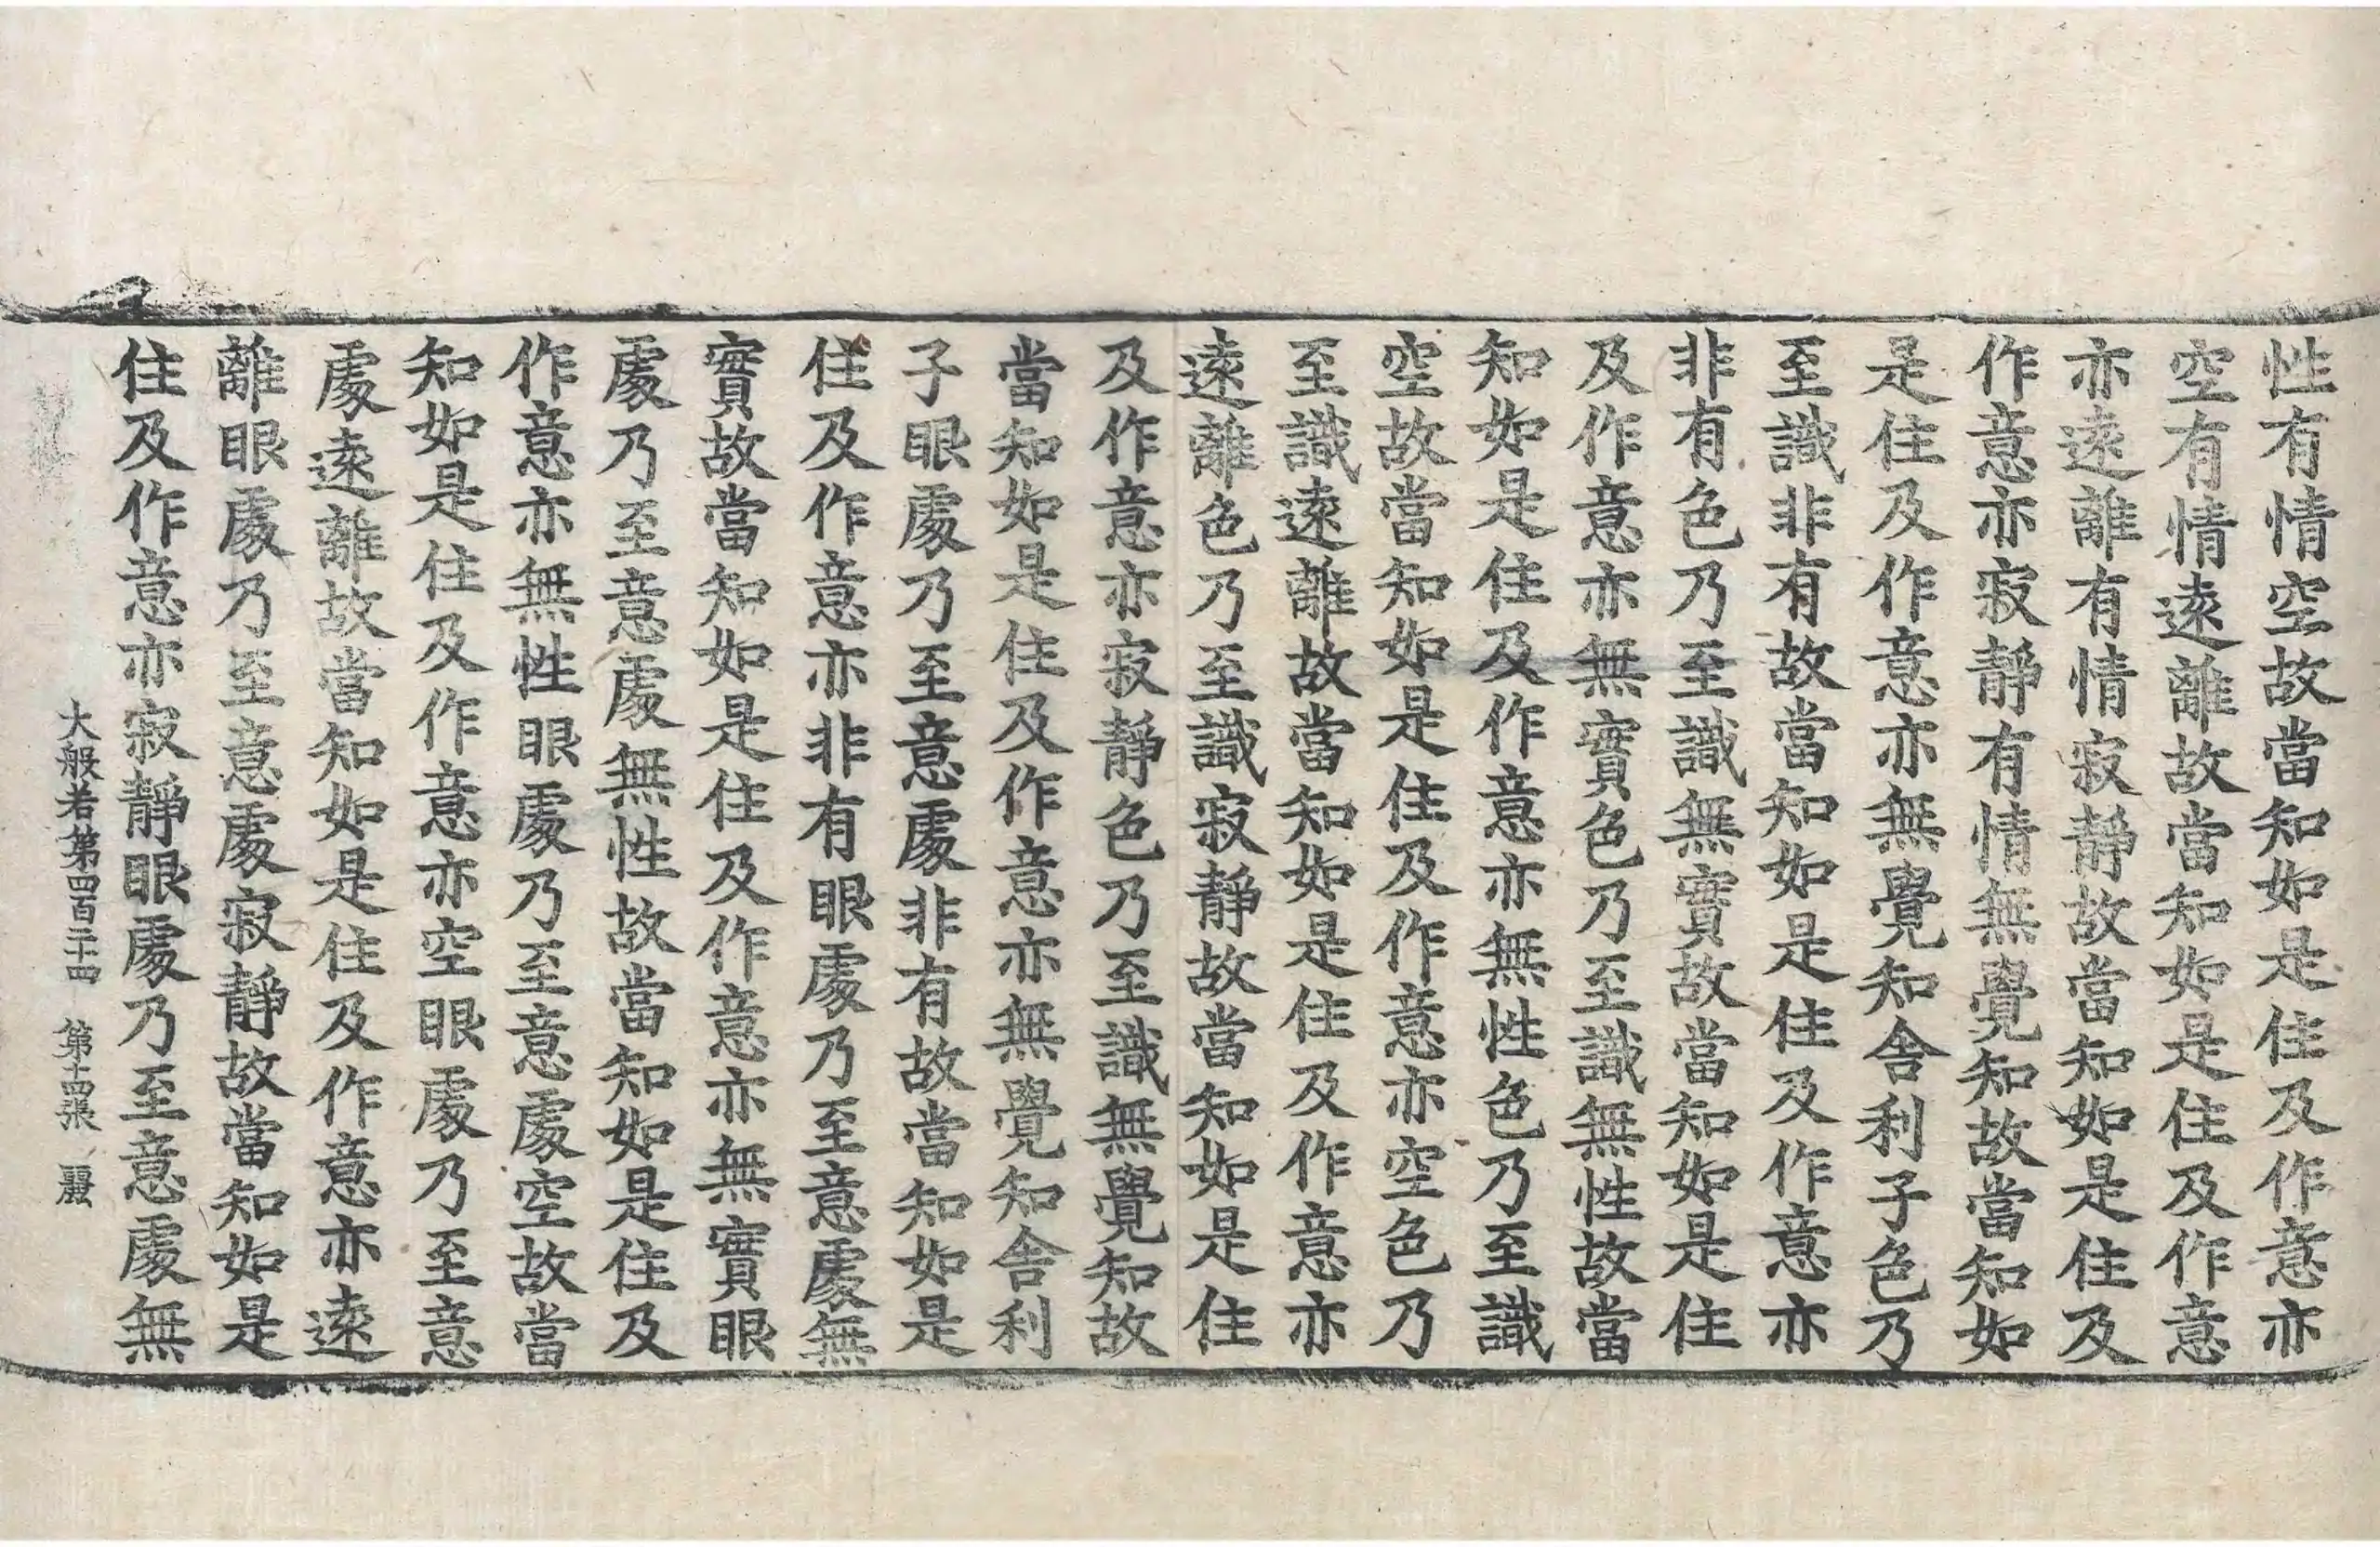 性有情空故當知如是住及作意亦
空有情遠離故當知如是住及作意
亦遠離有情寂靜故當知如是住及
作意亦寂靜有情無覺知故當知如
是住及作意亦無覺知舍利子色乃
至識非有故當知如是住及作意亦
非有色乃至識無實故當知如是住
及作意亦無實色乃至識無性故當
知如是住及作意亦無性色乃至識
空故當知如是住及作意亦空色乃
至識遠離故當知如是住及作意亦
遠離色乃至識寂靜故當知如是住
及作意亦寂靜色乃至識無覺知故
當知如是住及作意亦無覺知舍利
子眼處乃至意處非有故當知如是
住及作意亦非有眼處乃至意處無
實故當知如是住及作意亦無實眼
處乃至意處無性故當知如是住及
作意亦無性眼處乃至意處空故當
知如是住及作意亦空眼處乃至意
處遠離故當知如是住及作意亦遠
離眼處乃至意處寂靜故當知如是
住及作意亦寂靜眼處乃至意處無
大般若第四百二十四 第十四張 麗